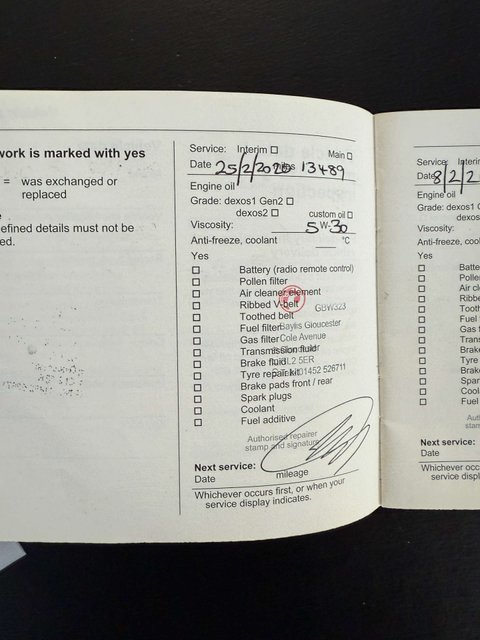 work is marked with yes
= was exchanged or
replaced
efined details must not be
ed.
Service: Interim ☐ Main ☐
Date 25/2/2020 miles 13489
Engine oil
Grade: dexos1 Gen2 ☐
dexos2 ☐ custom oil ☐
Viscosity: 5 W- 30
Anti-freeze, coolant ___ °C
Yes
☐ Battery (radio remote control)
☐ Pollen filter
☐ Air cleaner element
☐ Ribbed V-belt GBW323
☐ Toothed belt
☐ Fuel filter Baylis Gloucester
☐ Gas filter Cole Avenue
☐ Transmission fluid
☐ Brake fluid GL2 5ER
☐ Tyre repair kit 01452 526711
☐ Brake pads front / rear
☐ Spark plugs
☐ Coolant
☐ Fuel additive
Authorised repairer
stamp and signature
Next service:
Date mileage
Whichever occurs first, or when your
service display indicates.
Service: Interi
Date 8/2/2
Engine oil
Grade: dexos1
dexos
Viscosity:
Anti-freeze, cool
Yes
☐ Batte
☐ Polle
☐ Air cl
☐ Ribb
☐ Tooth
☐ Fuel
☐ Gas f
☐ Trans
☐ Brak
☐ Tyre
☐ Brak
☐ Spar
☐ Cool
☐ Fuel
Auth
stam
Next service:
Date
Whichever occu
service displ